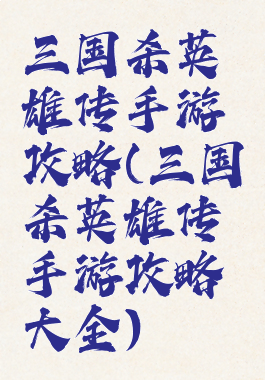 三国杀英
雄传手游
攻略(三国
杀英雄传
手游攻略
大全)